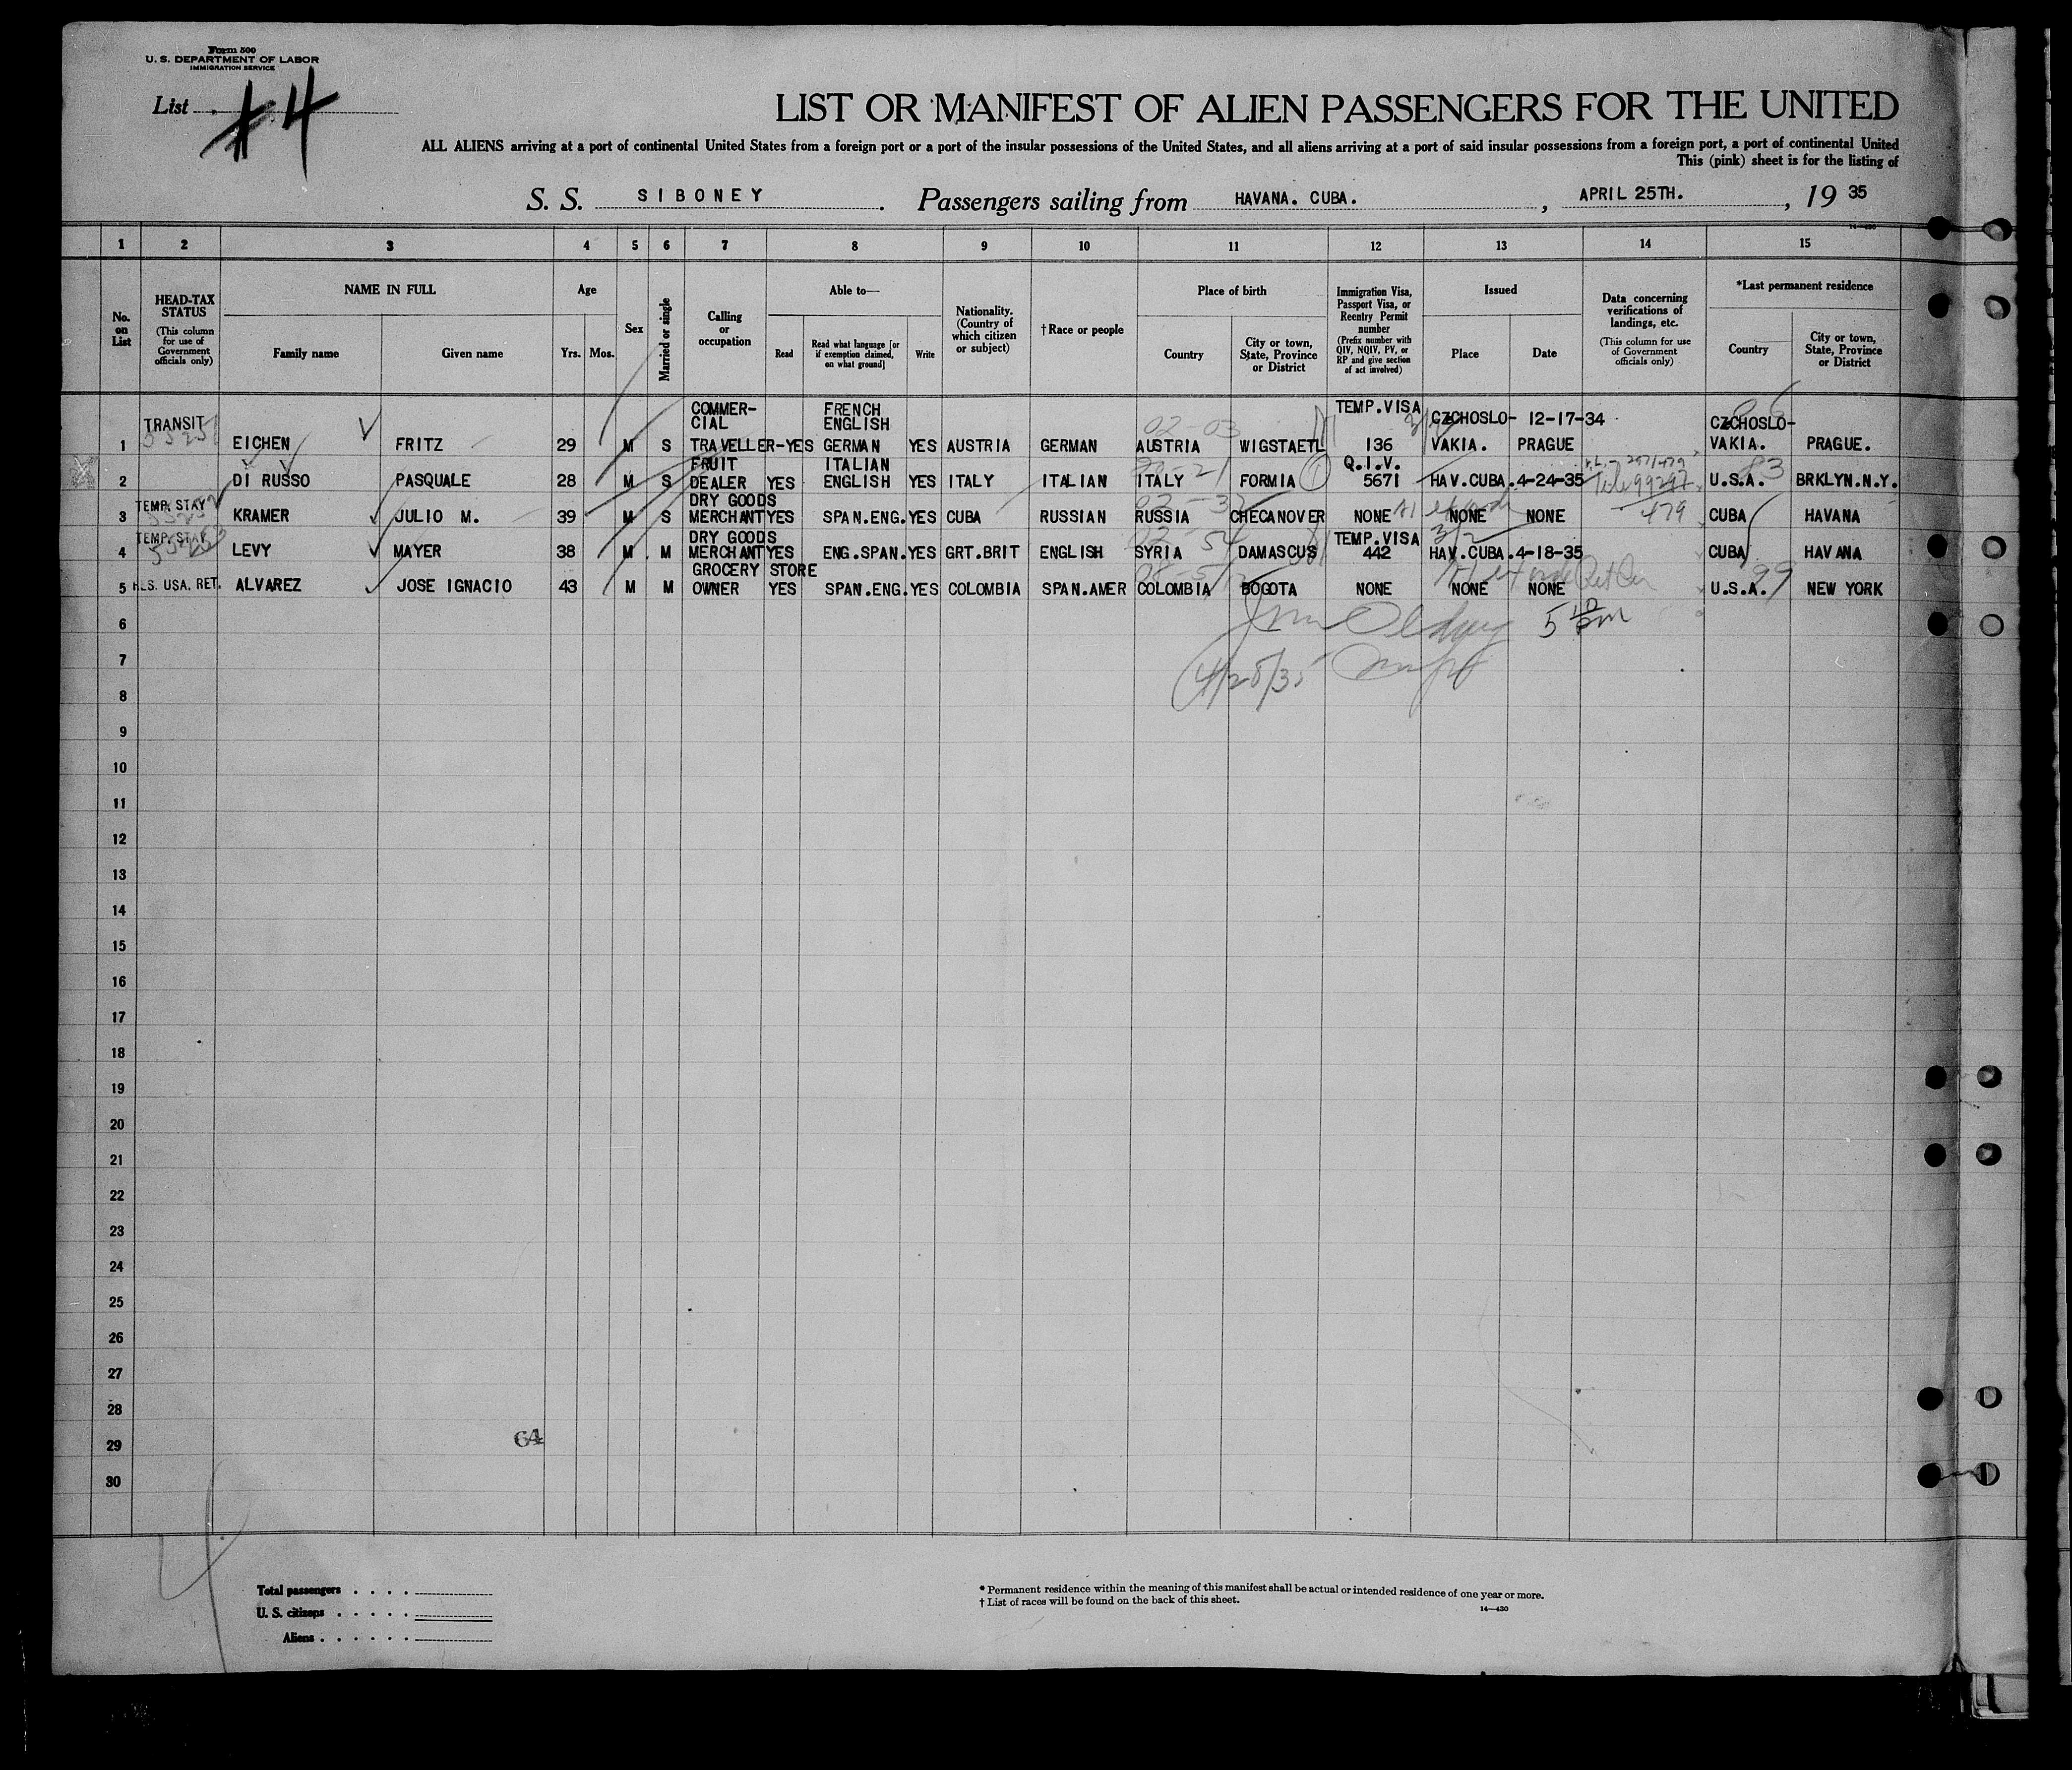 Form 500
U. S. DEPARTMENT OF LABOR
IMMIGRATION SERVICE
List 4
LIST OR MANIFEST OF ALIEN PASSENGERS FOR THE UNITED
ALL ALIENS arriving at a port of continental United States from a foreign port or a port of the insular possessions of the United States, and all aliens arriving at a port of said insular possessions from a foreign port, a port of continental United
This (pink) sheet is for the listing of
S. S. SIBONEY. Passengers sailing from HAVANA. CUBA., APRIL 25TH., 19 35
1 2 3 4 5 6 7 8 9 10 11 12 13 14 15
No. on List
HEAD-TAX STATUS (This column for use of Government officials only)
NAME IN FULL
Family name Given name
Age
Yrs. Mos.
Sex
Married or single
Calling or occupation
Able to—
Read
Read what language [or if exemption claimed, on what ground]
Write
Nationality. (Country of which citizen or subject)
†Race or people
Place of birth
Country
City or town, State, Province or District
Immigration Visa, Passport Visa, or Reentry Permit number (Prefix number with QIV, NQIV, PV, or RP and give section of act involved)
Issued
Place Date
Data concerning verifications of landings, etc. (This column for use of Government officials only)
*Last permanent residence
Country
City or town, State, Province or District
1 TRANSIT EICHEN FRITZ 29 M S COMMERCIAL TRAVELLER-YES FRENCH ENGLISH GERMAN YES AUSTRIA GERMAN AUSTRIA WIGSTAETL TEMP.VISA 136 CZCHOSLO-VAKIA. PRAGUE 12-17-34 CZCHOSLO-VAKIA. PRAGUE.
2 DI RUSSO PASQUALE 28 M S FRUIT DEALER YES ITALIAN ENGLISH YES ITALY ITALIAN ITALY FORMIA Q.I.V. 5671 HAV.CUBA.4-24-35 U.S.A. BRKLYN.N.Y.
3 TEMP. STAY KRAMER JULIO M. 39 M S DRY GOODS MERCHANT YES SPAN.ENG. YES CUBA RUSSIAN RUSSIA CHECANOVER NONE NONE NONE 479 CUBA HAVANA
4 TEMP. STAY LEVY MAYER 38 M M DRY GOODS MERCHANT YES ENG.SPAN. YES GRT.BRIT ENGLISH SYRIA DAMASCUS TEMP.VISA 442 HAV.CUBA.4-18-35 CUBA HAVANA
5 RES. USA. RET. ALVAREZ JOSE IGNACIO 43 M M GROCERY STORE OWNER YES SPAN.ENG. YES COLOMBIA SPAN.AMER COLOMBIA BOGOTA NONE NONE NONE U.S.A. NEW YORK
6
7
8 4/28/35
9
10
11
12
13
14
15
16
17
18
19
20
21
22
23
24
25
26
27
28
29 64
30
Total passengers . . . .
U. S. citizens . . . . .
Aliens . . . . . .
* Permanent residence within the meaning of this manifest shall be actual or intended residence of one year or more.
† List of races will be found on the back of this sheet.
14—430